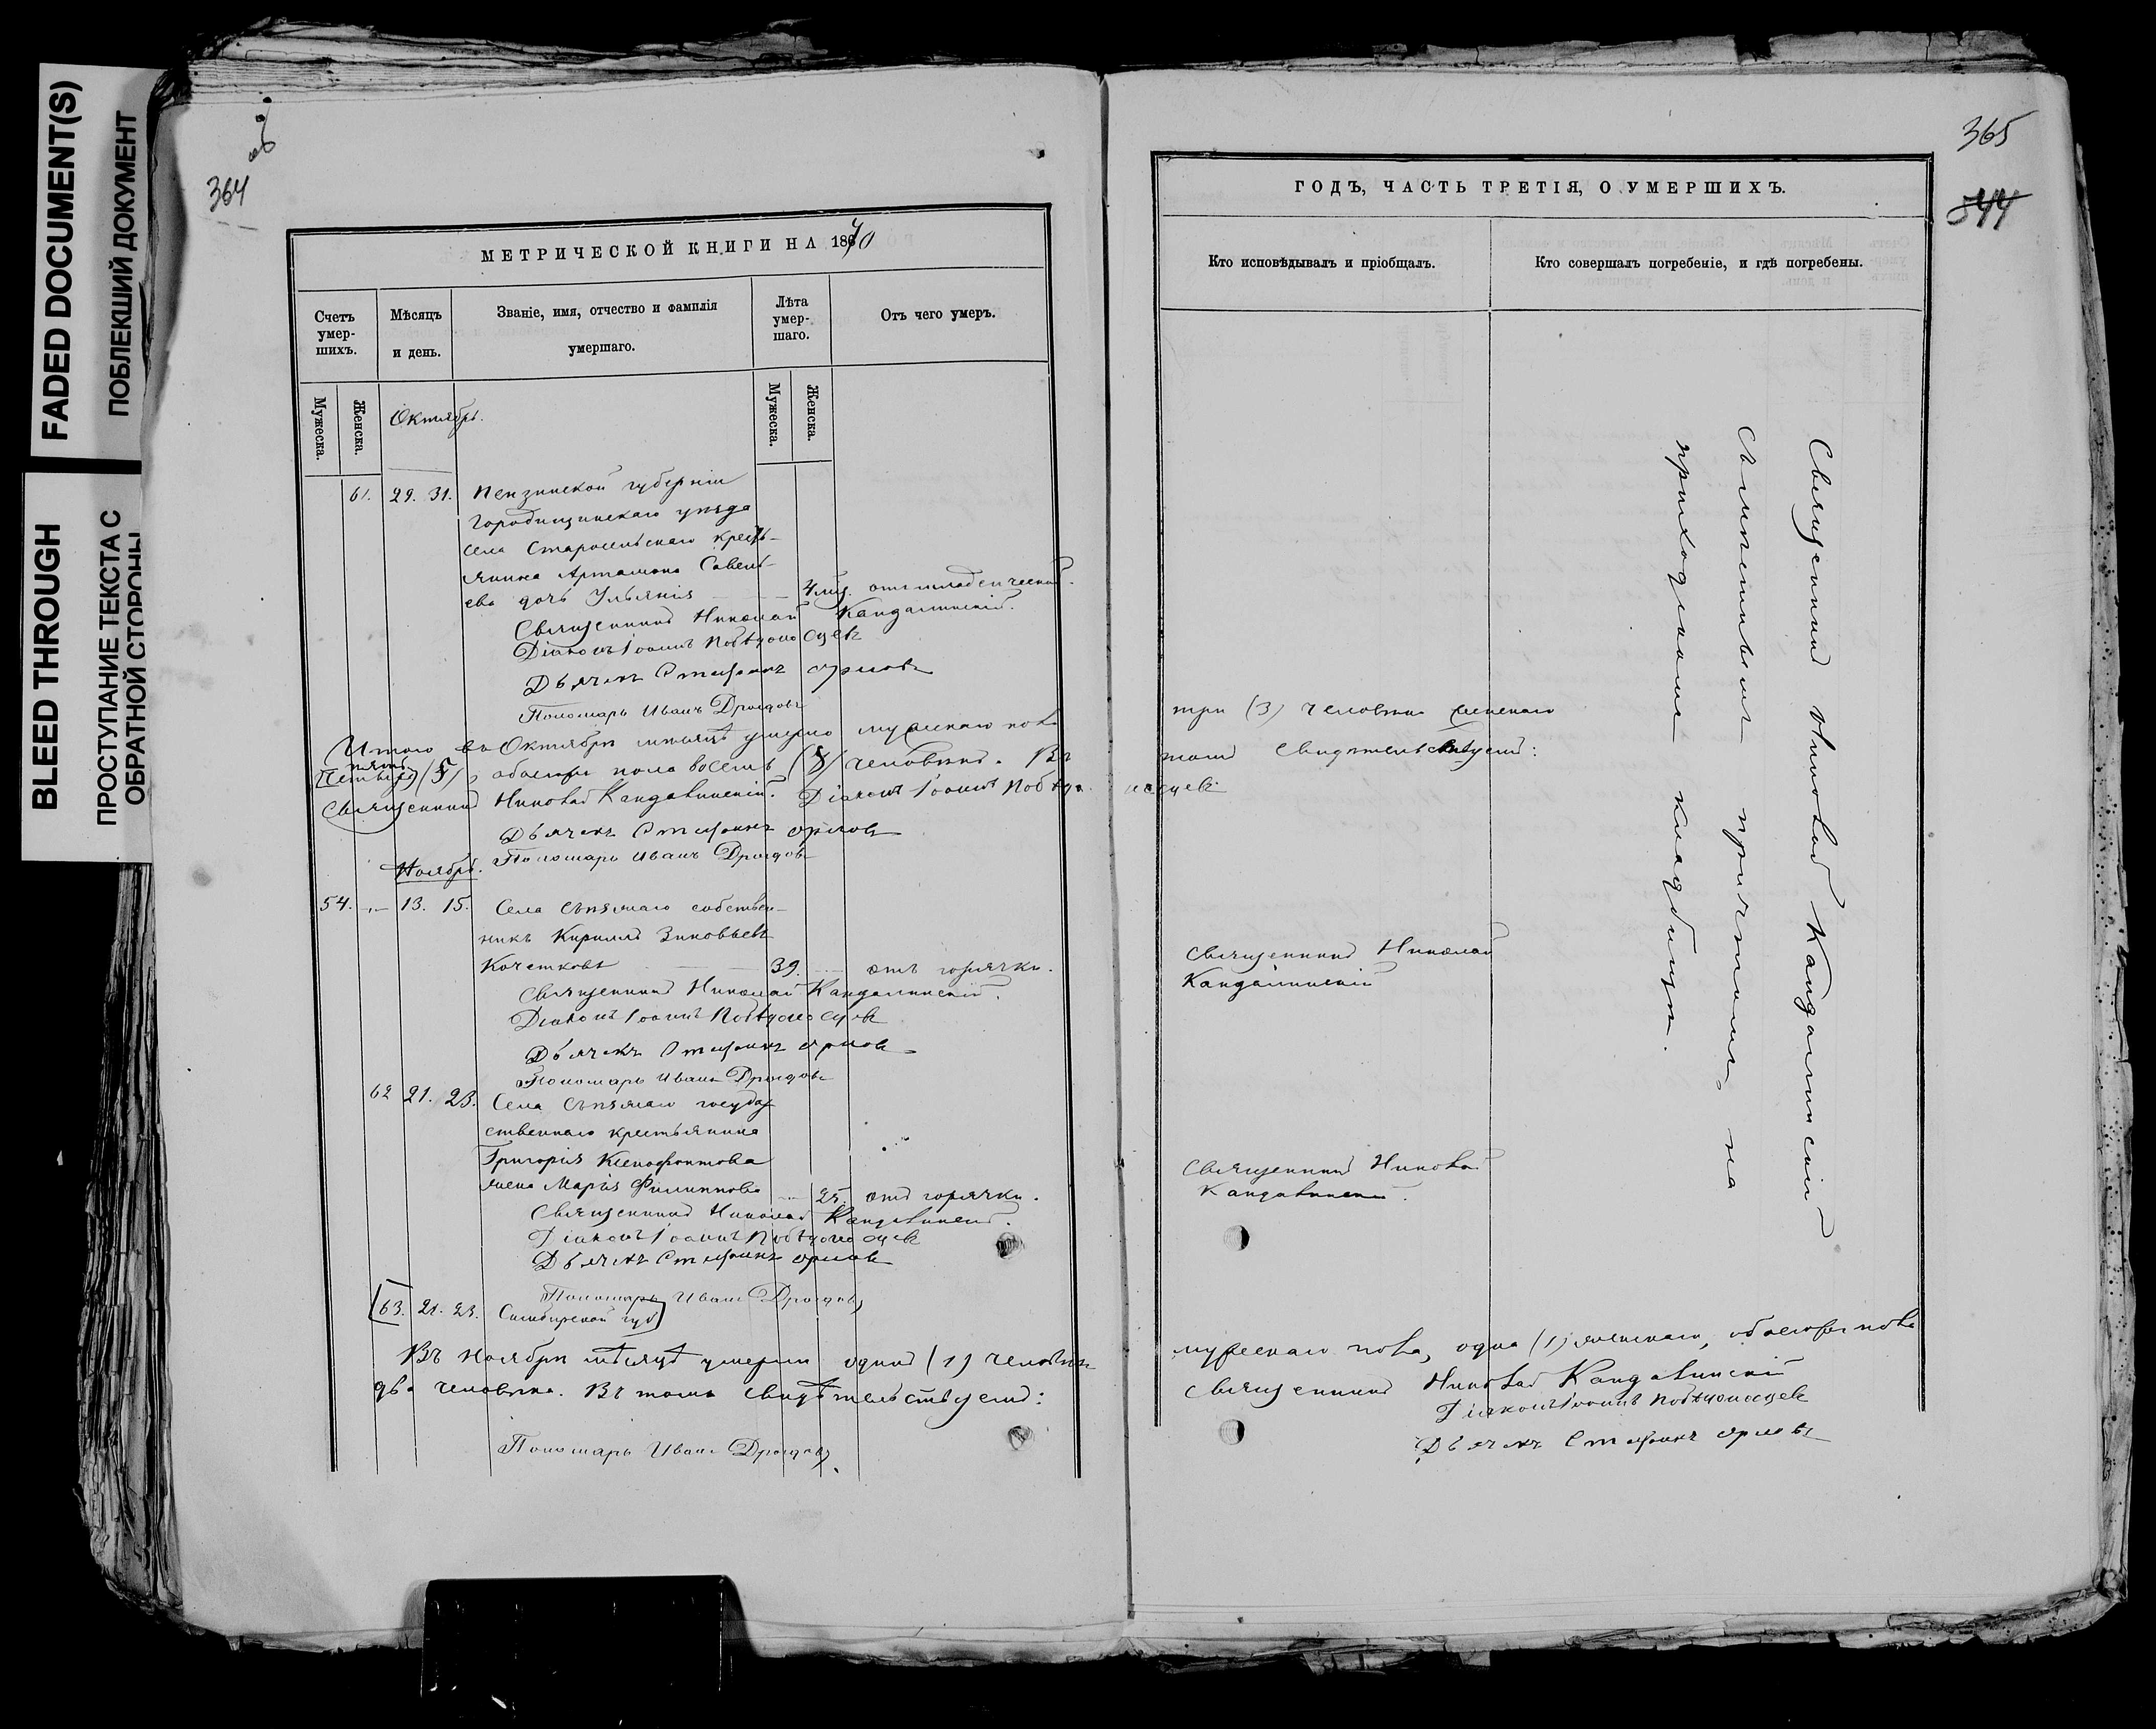 FADED DOCUMENT(S)
ПОБЛЕКШИЙ ДОКУМЕНТ
BLEED THROUGH
ПРОСТУПАНИЕ ТЕКСТА С
ОБРАТНОЙ СТОРОНЫ
364
МЕТРИЧЕСКОЙ КНИГИ НА 1870
Счетъ умер-шихъ.
Мѣсяцъ и день.
Званіе, имя, отчество и фамилія умершаго.
Лѣта умер-шаго.
Отъ чего умеръ.
Мужеска.
Женска.
Мужеска.
Женска.
Октябрь.
61. 29. 31. Пензинской губерніи
Городищинскаго уѣзда
села Старосельскаго кресть-
янина Артамона Савель-
ева дочь Ульянія 4 мѣс. отъ младенческой.
Священникъ Николай Кандалинскій.
Діаконъ Іоаннъ Побѣдоносцевъ
Дьячекъ Стефанъ Орловъ
Пономарь Иванъ Дроздовъ
Итого въ Октябрѣ мѣсяцѣ умерло мужескаго пола
пять
[четыре] (5), обоего пола восемь (8) человѣкъ. Въ
Священникъ Николай Кандалинскій. Діаконъ Іоаннъ Побѣдоносцевъ
Дьячекъ Стефанъ Орловъ
Пономарь Иванъ Дроздовъ
Ноябрь.
54. 13. 15. Села собствен-
никъ Кириллъ Зиновьевъ
Кочетковъ 39. отъ горячки.
Священникъ Николай Кандалинскій.
Діаконъ Іоаннъ Побѣдоносцевъ
Дьячекъ Стефанъ Орловъ
Пономарь Иванъ Дроздовъ
62 21. 23. Села государ
ственнаго крестьянина
Григорія Ксенофонтова
жена Марія Филиппова 25. отъ горячки.
Священникъ Николай Кандалинскій.
Діаконъ Іоаннъ Побѣдоносцевъ
Дьячекъ Стефанъ Орловъ
Пономарь Иванъ Дроздовъ
[63. 21. 23. Симбирской губ]
Въ Ноябрѣ мѣсяцѣ умерли одинъ (1) человѣкъ
два человѣка. Въ томъ свидѣтельствуемъ:
Пономарь Иванъ Дроздовъ
365
544
ГОДЪ, ЧАСТЬ ТРЕТІЯ, О УМЕРШИХЪ.
Кто исповѣдывалъ и пріобщалъ.
Кто совершалъ погребеніе, и гдѣ погребены.
три (3) человѣка женскаго
томъ свидѣтельствуемъ:
Священникъ Николай
Кандалинскій
Священникъ Николай
Кандалинскій.
Священникъ Николай Кандалинскій
съ причтомъ, на
приходскомъ кладбищѣ.
мужескаго пола, одна (1) женскаго, обоего пола
Священникъ Николай Кандалинскій
Діаконъ Іоаннъ Побѣдоносцевъ
Дьячекъ Стефанъ Орловъ